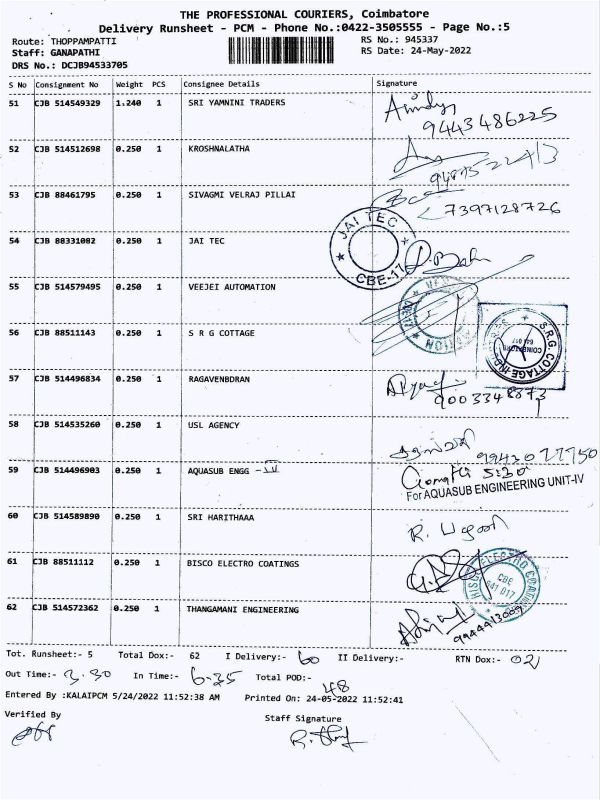 THE PROFESSIONAL COURIERS, Coimbatore
Delivery Runsheet - PCM - Phone No.:0422-3505555 - Page No.:5
Route: THOPPAMPATTI RS No.: 945337
Staff: GANAPATHI RS Date: 24-May-2022
DRS No.: DCJB94533705
S No Consignment No Weight PCS Consignee Details Signature
51 CJB 514549329 1.240 1 SRI YAMNINI TRADERS
9443486225
52 CJB 514512698 0.250 1 KROSHNALATHA
53 CJB 88461795 0.250 1 SIVAGMI VELRAJ PILLAI
7397128726
54 CJB 88331082 0.250 1 JAI TEC
JAI TEC
CBE-17
55 CJB 514579495 0.250 1 VEEJEI AUTOMATION
56 CJB 88511143 0.250 1 S R G COTTAGE
S.R.G. COTTAGE
57 CJB 514496834 0.250 1 RAGAVENBDRAN
9003348873
58 CJB 514535260 0.250 1 USL AGENCY
9943077750
59 CJB 514496903 0.250 1 AQUASUB ENGG
5:30
For AQUASUB ENGINEERING UNIT-IV
60 CJB 514589890 0.250 1 SRI HARITHAAA
61 CJB 88511112 0.250 1 BISCO ELECTRO COATINGS
CBE
641 017
62 CJB 514572362 0.250 1 THANGAMANI ENGINEERING
Tot. Runsheet:- 5 Total Dox:- 62 I Delivery:- 60 II Delivery:- RTN Dox:- 02
Out Time:- 3.30 In Time:- 6.35 Total POD:- 48
Entered By :KALAIPCM 5/24/2022 11:52:38 AM Printed On: 24-05-2022 11:52:41
Verified By Staff Signature